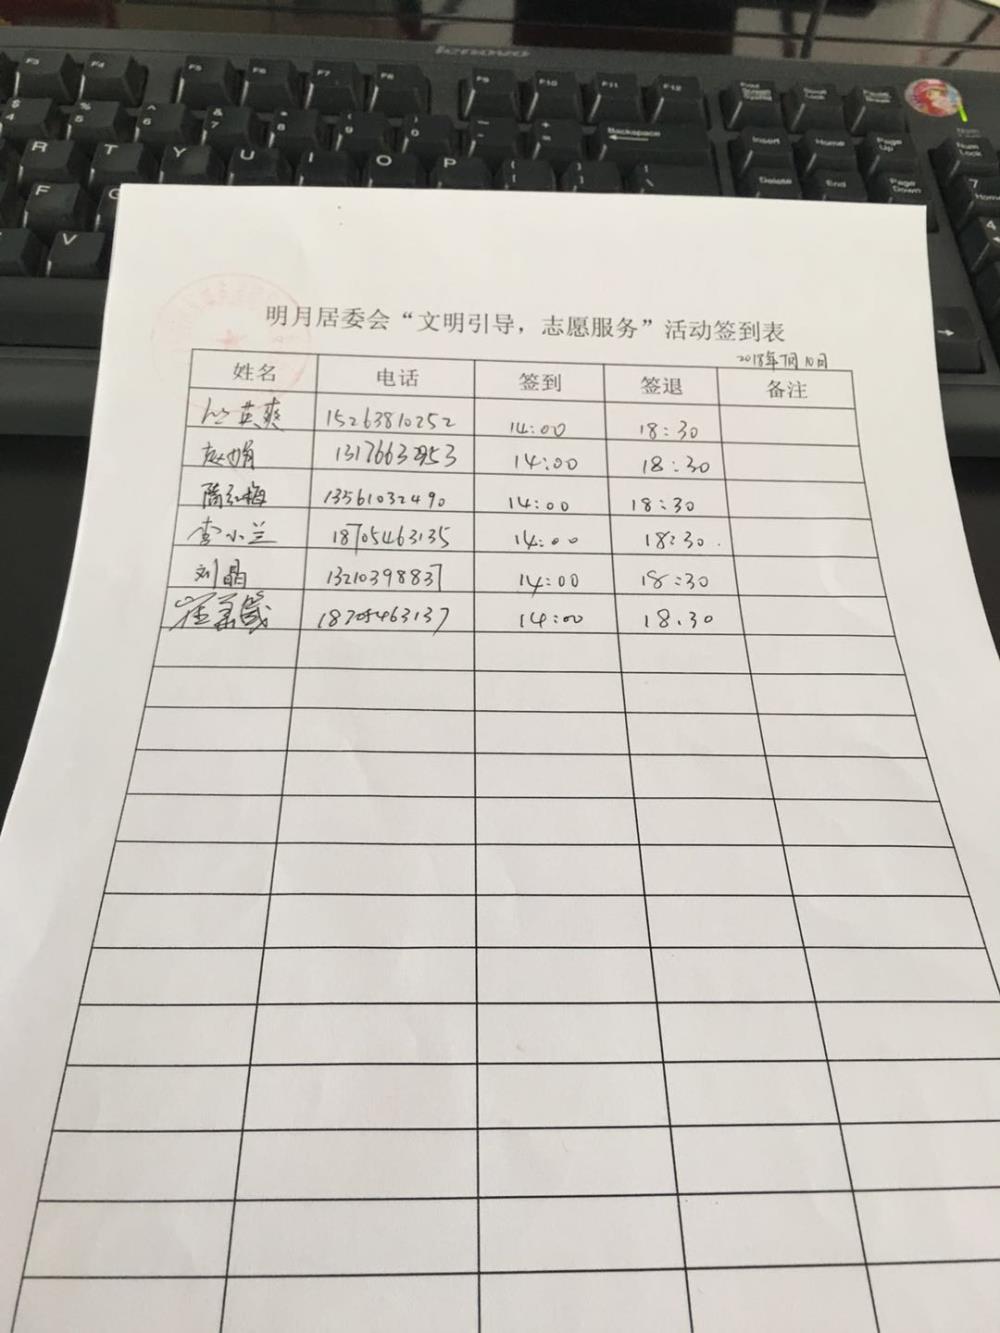 lenovo
F3 F4 F5 F6 F7 F8 F9 F10 F11 F12 Print Screen SysRq Scroll Lock Pause Break
$ 4 % 5 ^ 6 & 7 * 8 ( 9 ) 0 - + = Backspace Insert Home Page Up Num Lock
R T Y U I O P { [ } ] | \ Delete End Page Down 7 Home
F G 4
V
明月居委会“文明引导，志愿服务”活动签到表
2018年7月10日
姓名 电话 签到 签退 备注
英爽 15263810252 14:00 18:30
赵娟 14:00 18:30
隋红梅 13561032490 14:00 18:30
李小兰 18705463135 14:00 18:30.
刘晶 13210398837 14:00 18:30
崔 18705463137 14:00 18.30